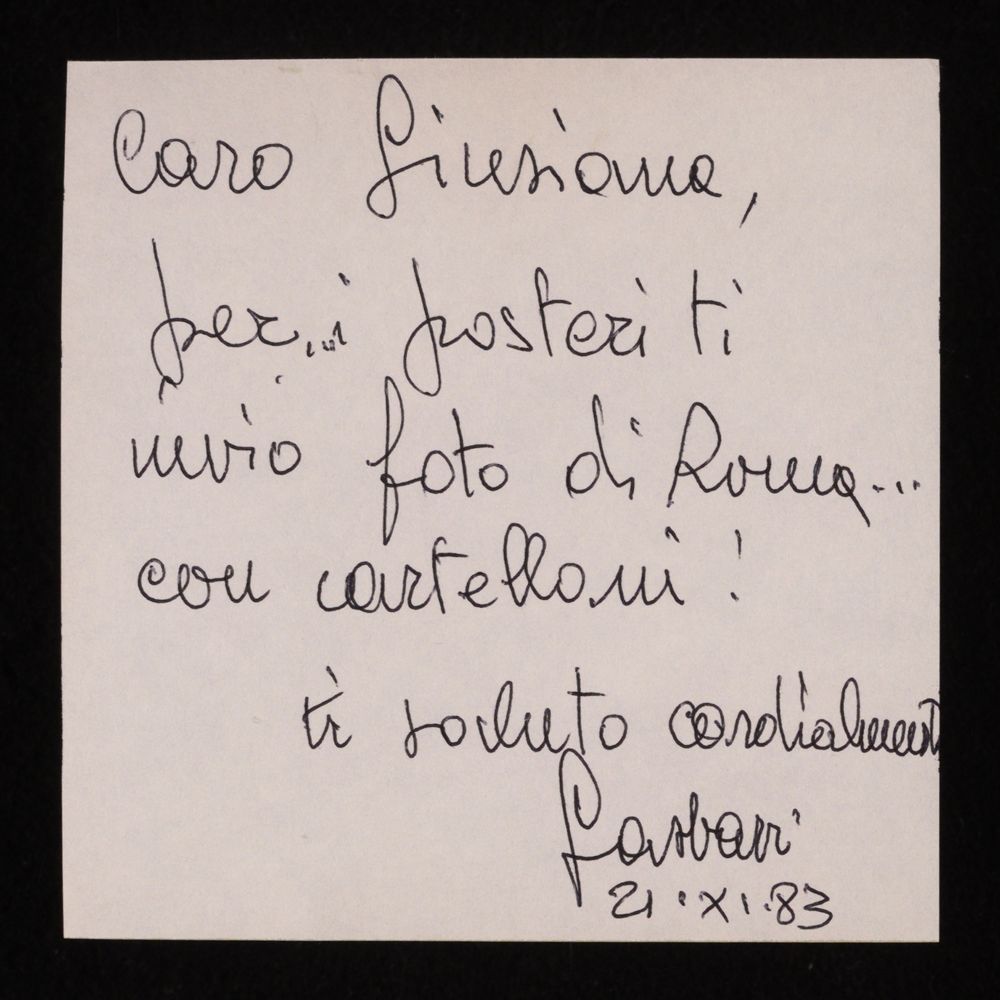 Caro
per...i posteri ti
invio foto di Roma...
con cartelloni!
ti saluto cordialmente
Gasbarri
21.XI.83